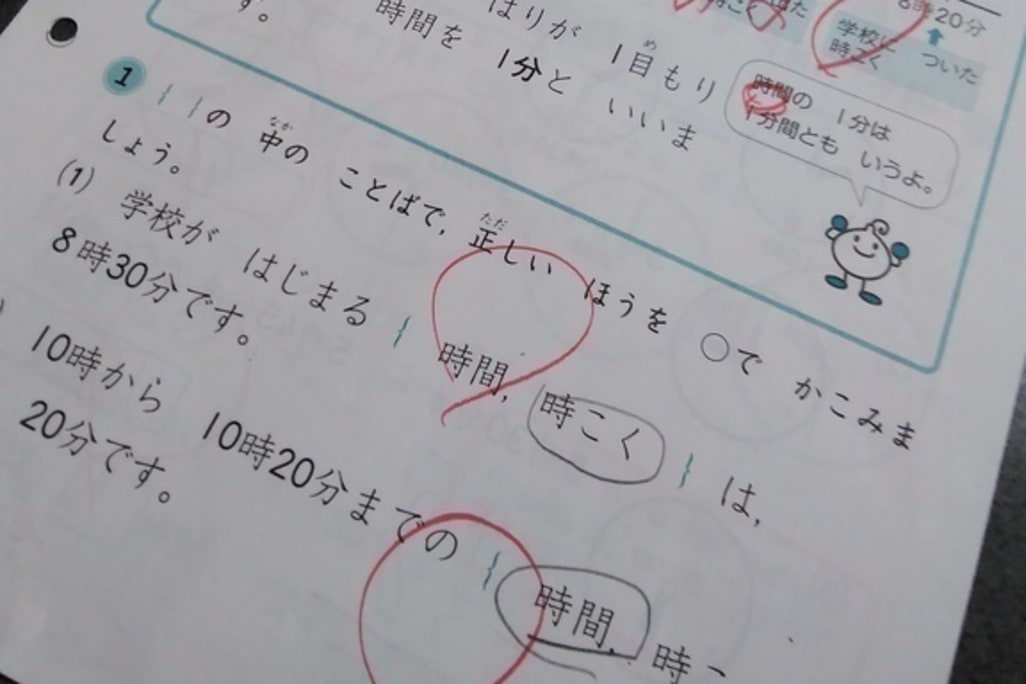 8時20分
学校に ついた
時こく
はりが 1目もり
す。
時間を 1分と いいま
時間の 1分は
1分間とも いうよ。
1 { }の 中の ことばで, 正しい ほうを ○で かこみま
しょう。
(1) 学校が はじまる { 時間, 時こく } は,
8時30分です。
10時から 10時20分までの { 時間, 時
20分です。